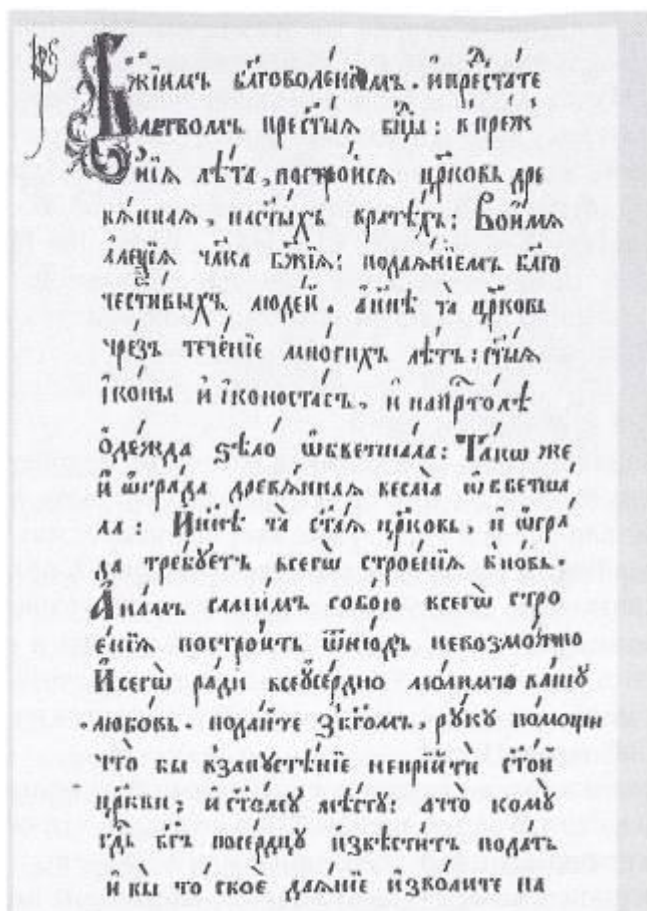 Бж҃їимъ бл҃говоленїемъ. и҆ предстате
лством пречⷭ҇тыѧ бц҃ы: в преж
нїѧ лѣ́та, постро́исѧ цр҃ковь дре
вѧннаѧ, на ст҃ы́хъ вратѣ́хъ: Во и҆́мѧ
але҆ѯі́ѧ чл҃ка бж҃їѧ: подаѧ́нїемъ бл҃го
чести́выхъ люде́й. а҆ нн҃ѣ та цр҃ковь
чрез̾ тече́нїе мно́гихъ лѣ́тъ: ст҃ы́ѧ
і҆ко́ны и҆ і҆коноста́съ, и҆ на прⷭ҇то́лѣ
ѻ҆де́жда ѕѣлѡ̀ ѡ҆бветша́ла: Та́кѡ же
и҆ ѡ҆гра́да древѧ́ннаѧ весма̀ ѡ҆бветша́
ла: И҆ нн҃ѣ та ст҃а́ѧ цр҃ковь, и҆ ѡ҆гра́
да тре́бꙋетъ всегѡ̀ строе́нїѧ вно́вь.
А҆ на́мъ сами́мъ собо́ю всегѡ̀ стро
е́нїѧ постро́ить ѿню́дъ невозмо́жно
И҆ сегѡ̀ ра́ди всеꙋсе́рдно мо́лимъ ва́шꙋ
любо́вь. пода́йте з̾ бг҃омъ, рꙋ́кꙋ по́мощи
что бы в запꙋстѣ́нїе непрїйтѝ ст҃о́й
цр҃кви; и҆ ст҃о́мꙋ мѣ́стꙋ: а҆ что̀ комꙋ̀
гдⷭ҇ь бг҃ъ посе́рдцꙋ и҆звѣсти́тъ пода́ть
и҆ вы̀ то̀ своѐ даѧ́нїе и҆зво́лите на